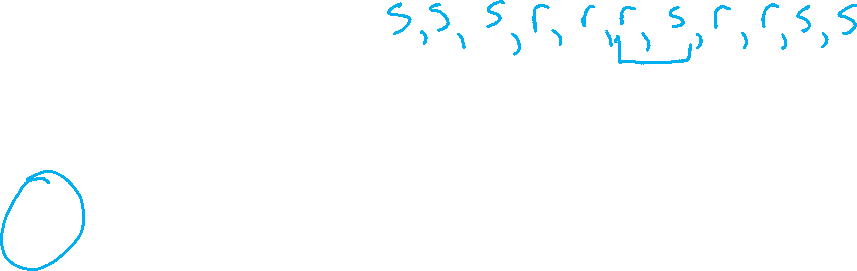 s, s, s, r, r, r, s, r, r, s, s